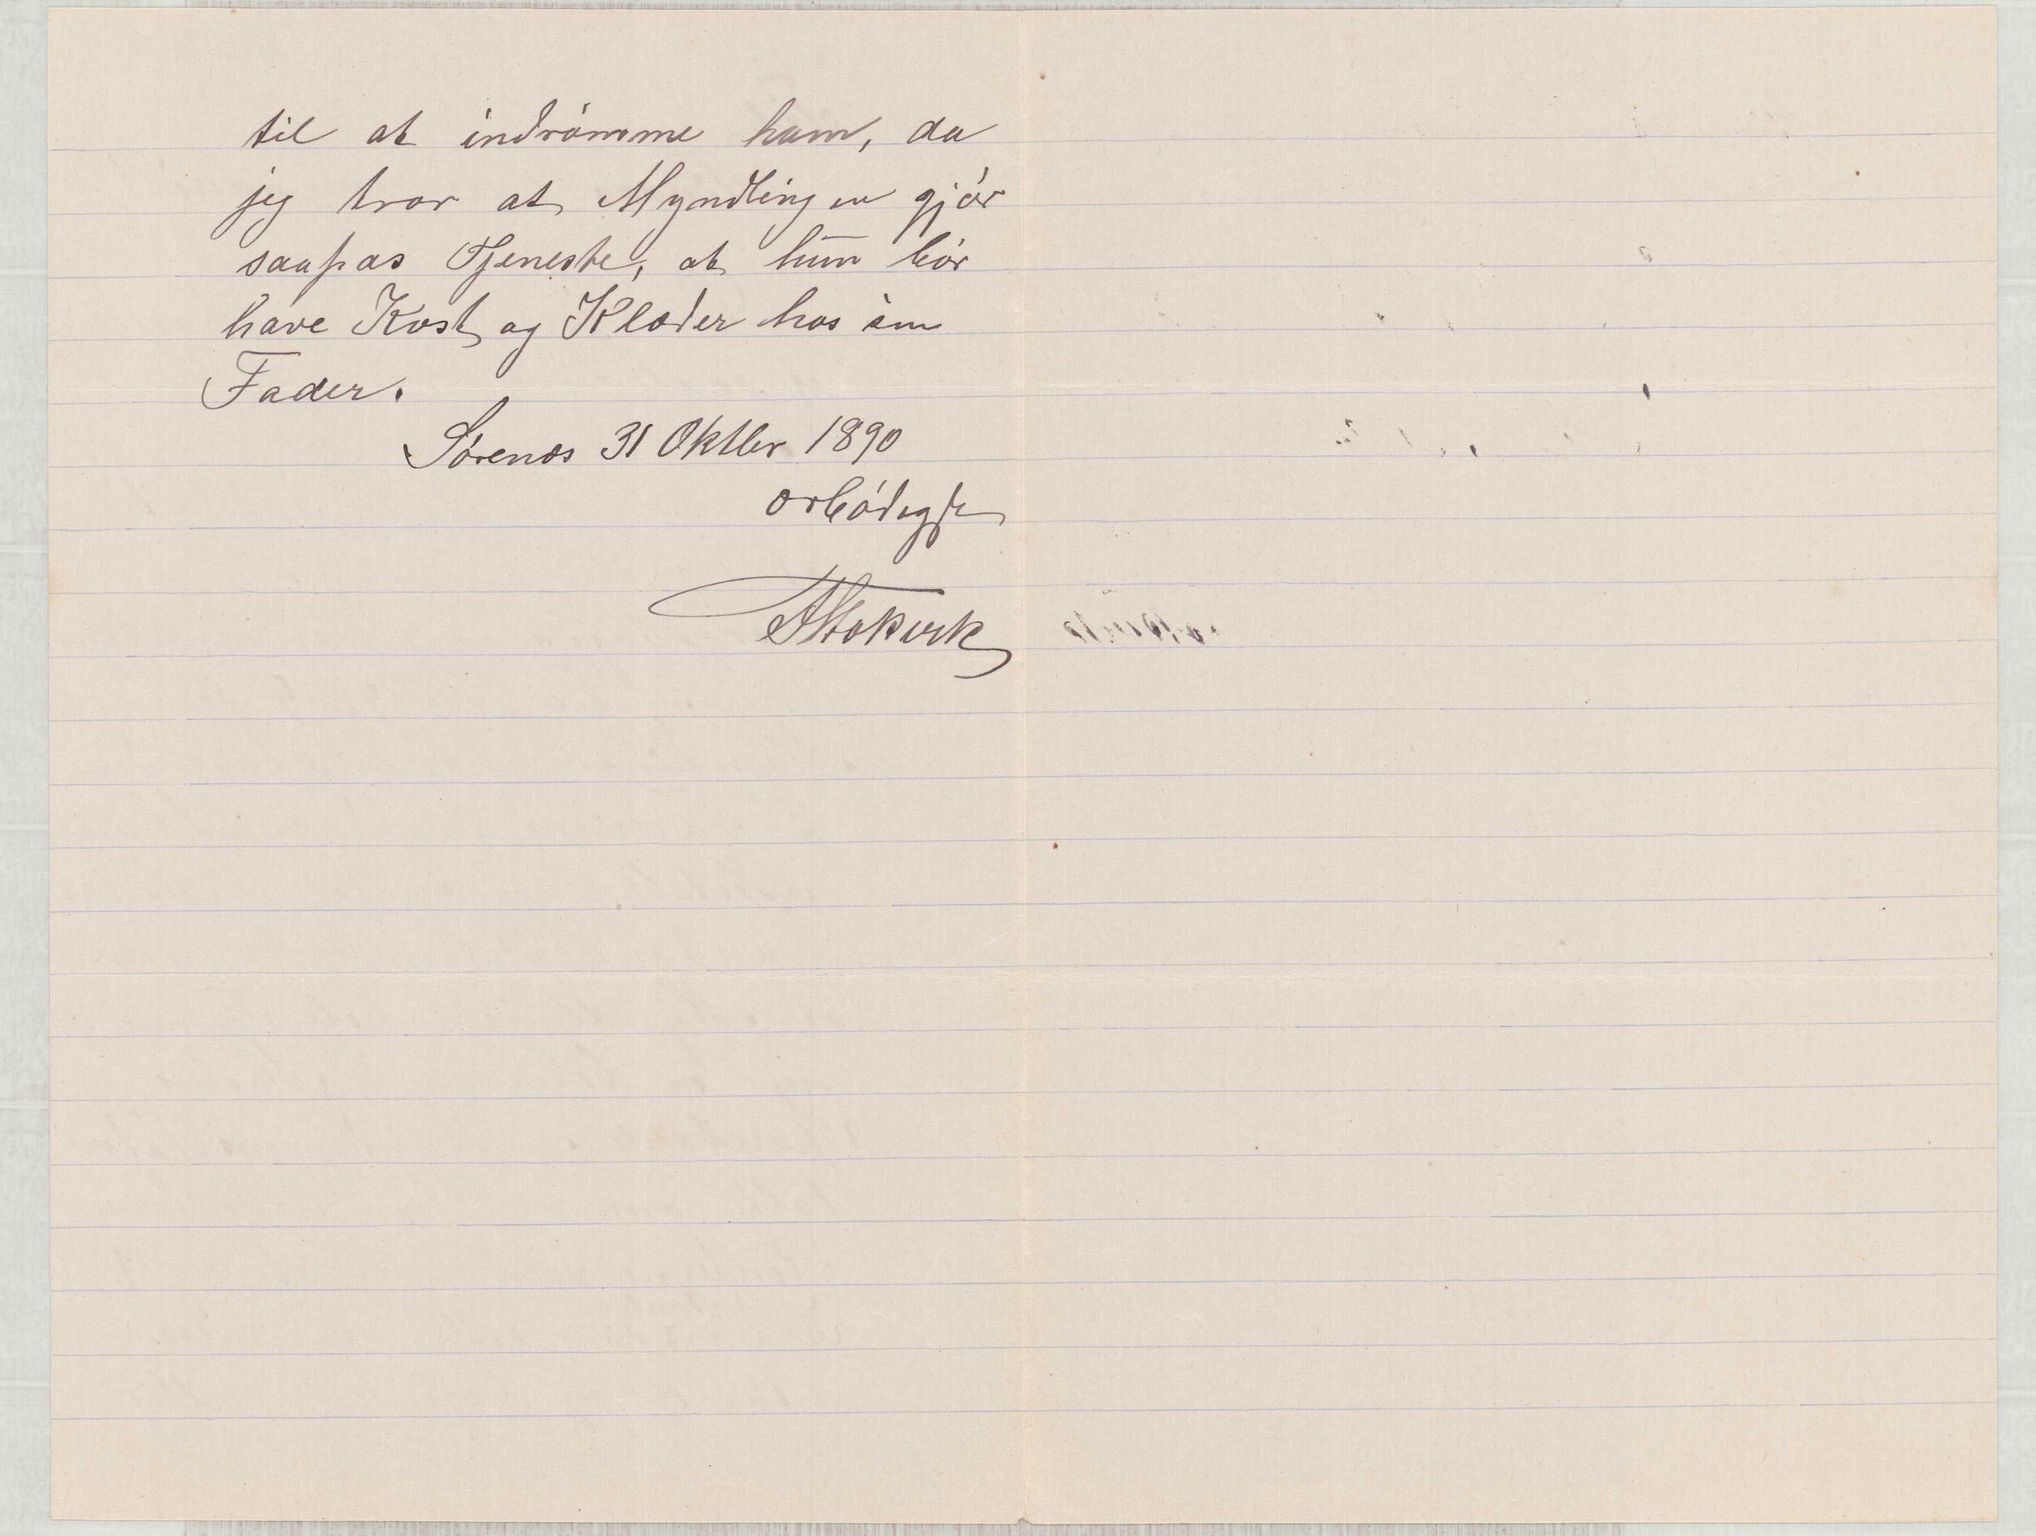 til at indrømme ham, da
jeg tror at Myndlingen gjør
saapas Tjeneste, at hun bør
have Kost og Klæder hos sin
Fader.
Sørenæs 31 Oktbr 1890
ærbødigst